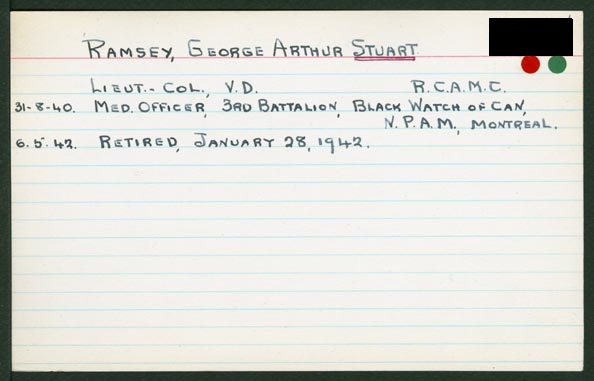 RAMSEY, GEORGE ARTHUR STUART
LIEUT.- COL., V.D. R.C.A.M.C.
31-8-40. MED. OFFICER, 3RD BATTALION, BLACK WATCH OF CAN,
N.P.A.M., MONTREAL.
6.5.42. RETIRED, JANUARY 28, 1942.